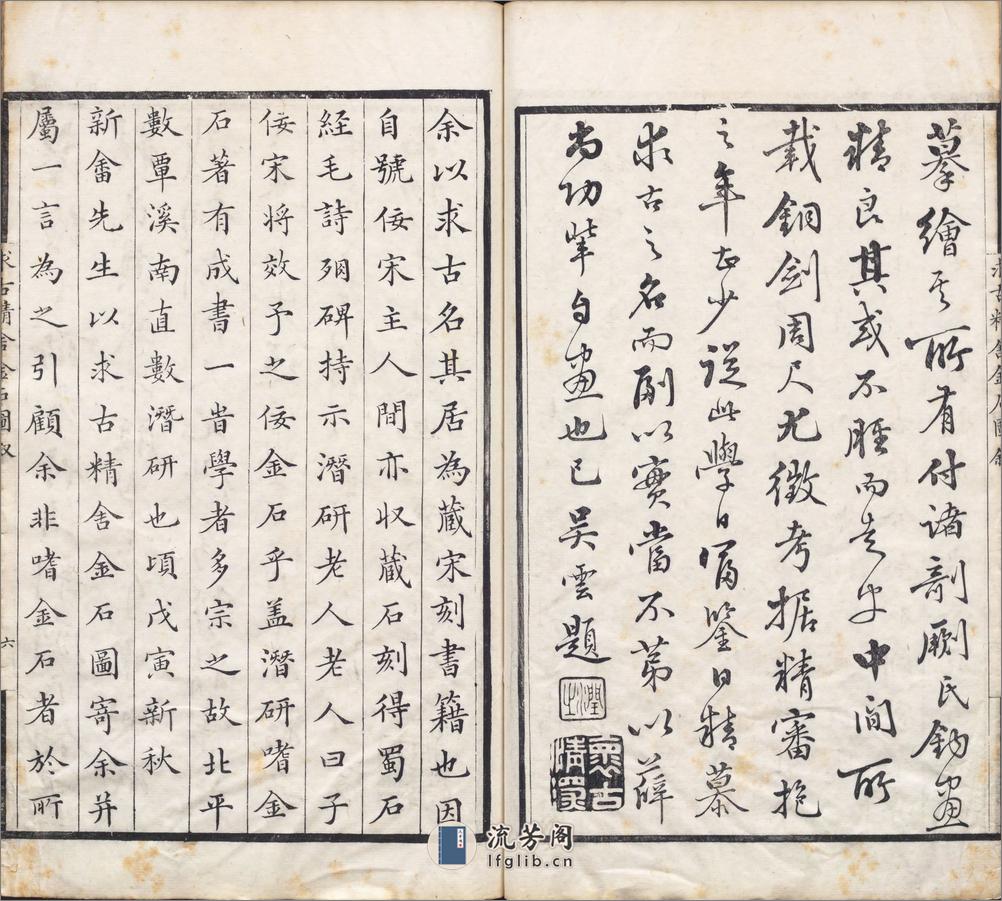 摹繪其所有付諸剞劂氏鉤畫
精良其或不脛而走乎中间所
載銅劍周尺尤徵考据精審抱
之年正少從此學日富鑒日精慕
求古之名而副以實當不苐以薛
尚功輩自畫也已吴雲題
余以求古名其居為藏宋刻書籍也因
自號佞宋主人間亦収蔵石刻得蜀石
經毛詩殘碑持示潛研老人老人曰子
佞宋将效予之佞金石乎盖潛研嗜金
石著有成書一旹學者多宗之故北平
數覃溪南直數潛研也頃戊寅新秋
新畬先生以求古精舍金石圖寄余并
屬一言為之引顧余非嗜金石者於所
求古精舍金石圖叙
六
流芳阁
lfglib.cn